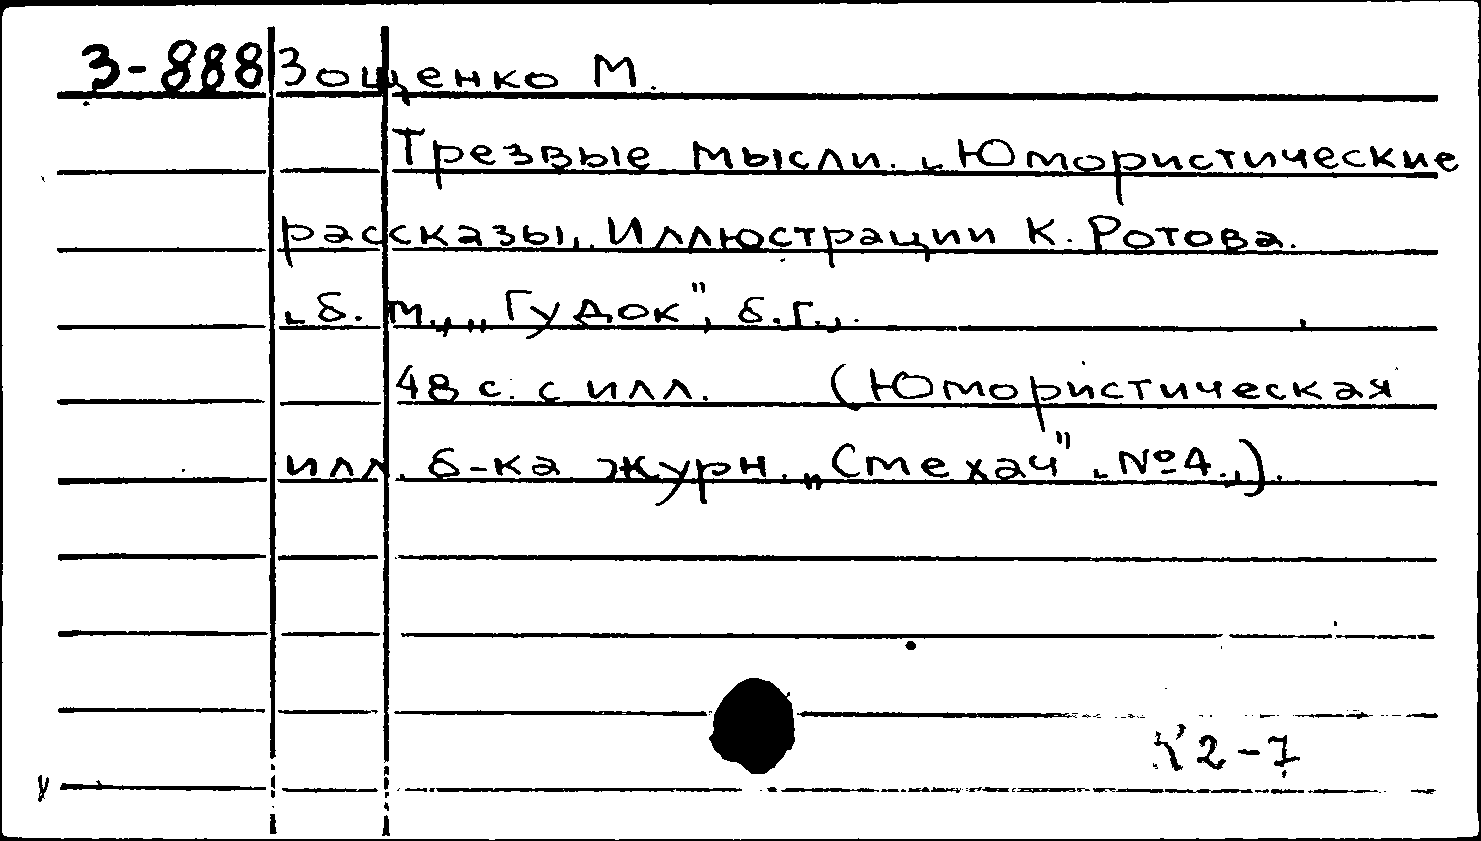 З-888 Зощенко М.
Трезвые мысли. [Юмористические
рассказы]. Иллюстрации К. Ротова.
[б. м.], „Гудок", [б.г.].
48 с. с илл. (Юмористическая
илл. б-ка журн. „Смехач" [№4.]).
К2-7